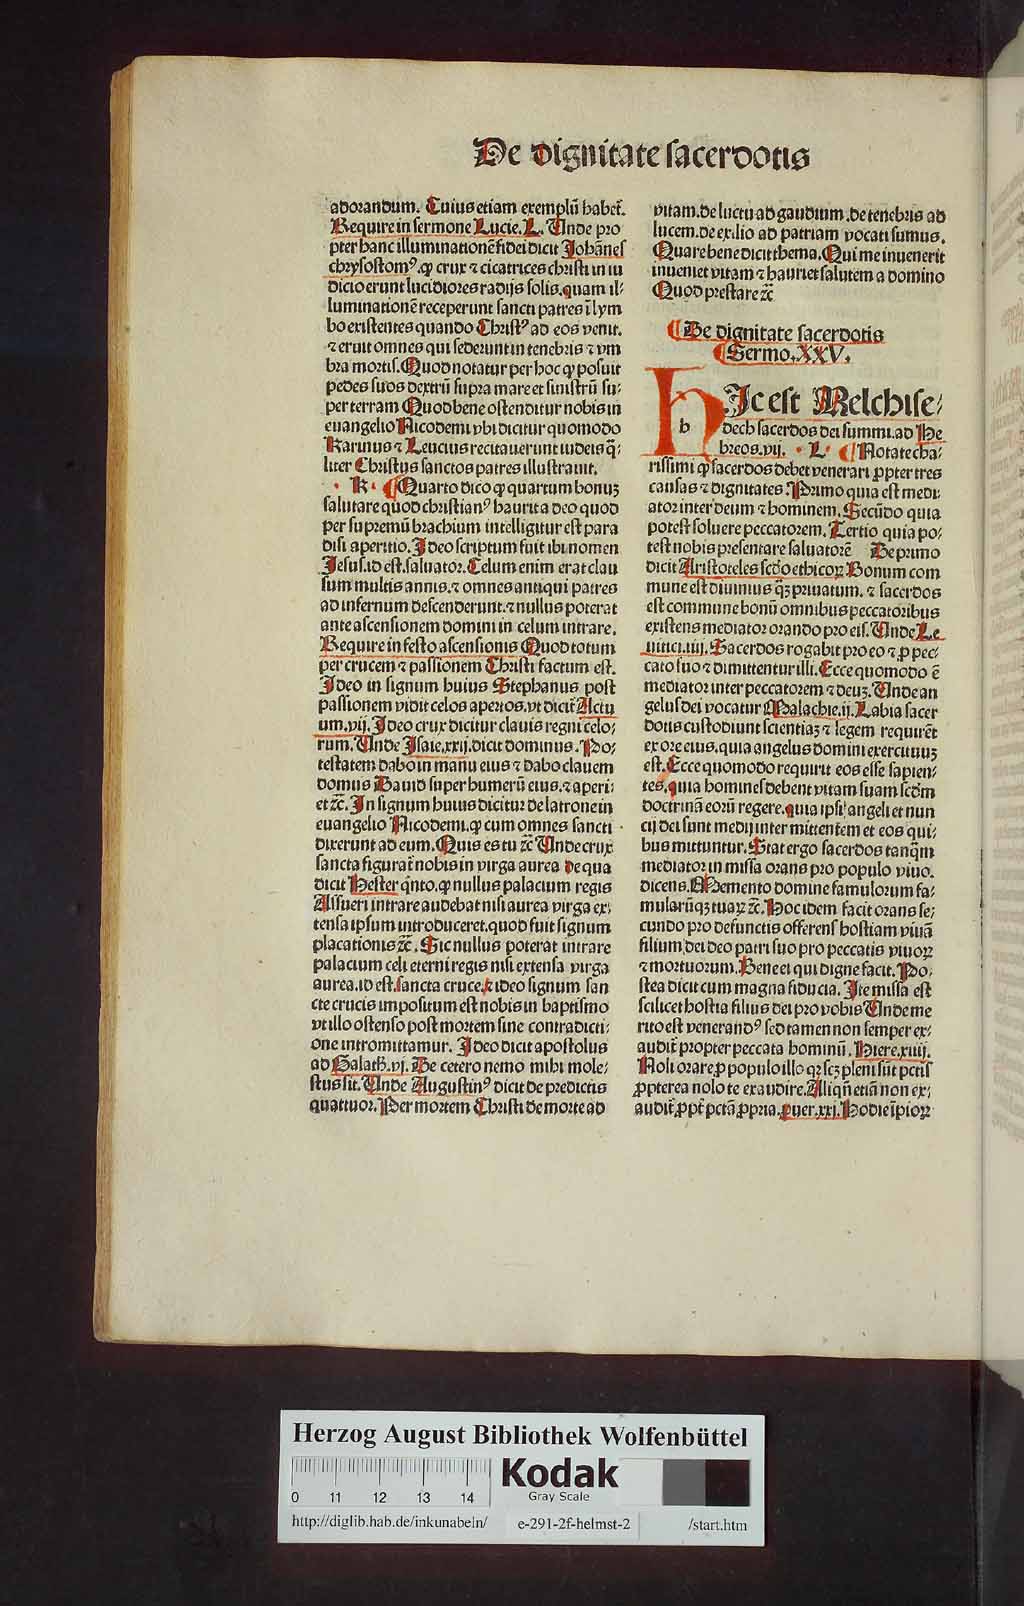 De dignitate sacerdotis
adorandum. Cuius etiam exemplū habet̄.
Require in sermone Lucie. L. Unde pro
pter hanc illuminationē fidei dicit Johānes
chrysostomꝰ. ꝙ crux ⁊ cicatrices christi in iu
dicio erunt lucidiores radijs solis. quam il⸗
luminationē receperunt sancti patres ī lym
bo existentes quando Christꝰ ad eos venit.
⁊ eruit omnes qui sederunt in tenebris ⁊ vm
bra mortis. Quod notatur per hoc ꝙ posuit
pedes suos dextrū supra mare et sinistrū su⸗
per terram Quod bene ostenditur nobis in
euangelio Nicodemi vbi dicitur quomodo
Karinus ⁊ Leucius recitauerunt iudeis q̄⸗
liter Christus sanctos patres illustrauit.
· K · ¶ Quarto dico ꝙ quartum bonuꝫ
salutare quod christianꝰ haurit a deo quod
per supremū brachium intelligitur est para
disi apertio. Ideo scriptum fuit ibi nomen
Jesus. id est. saluator. Celum enim erat clau
sum multis annis. ⁊ omnes antiqui patres
ad infernum descenderunt. ⁊ nullus poterat
ante ascensionem domini in celum intrare.
Require in festo ascensionis Quod totum
per crucem ⁊ passionem Christi factum est.
Ideo in signum huius Stephanus post
passionem vidit celos apertos. vt dicit̄ Actu
um. vij. Ideo crux dicitur clauis regni celo⸗
rum. Unde Isaie. xxij. dicit dominus. Po⸗
testatem dabo in manu eius ⁊ dabo clauem
domus Dauid super humerū eius. ⁊ aperi⸗
et ⁊c̄. In signum huius dicitur de latrone in
euangelio Nicodemi. ꝙ cum omnes sancti
dixerunt ad eum. Quis es tu ⁊c̄ Unde crux
sancta figurat̄ nobis in virga aurea de qua
dicit Hester q̇nto. ꝙ nullus palacium regis
Assueri intrare audebat nisi aurea virga ex⸗
tensa ipsum introduceret. quod fuit signum
placationis ⁊c̄. Sic nullus poterat intrare
palacium celi eterni regis nisi extensa virga
aurea. id est. sancta cruce. ⁊ ideo signum san
cte crucis impositum est nobis in baptismo
vt illo ostenso post mortem sine contradicti⸗
one intromittamur. Ideo dicit apostolus
ad Galath. vj. De cetero nemo mihi mole⸗
stus sit. Unde Augustinꝰ dicit de predictis
quattuor. Per mortem Christi de morte ad
vitam. de luctu ad gaudium. de tenebris ad
lucem. de exilio ad patriam vocati sumus.
Quare bene dicit thema. Qui me inuenerit
inueniet vitam ⁊ hauriet salutem a domino
Quod prestare ⁊c̄
¶ De dignitate sacerdotis
¶ Sermo. XXV.
h HIc est Melchise⸗
dech sacerdos dei summi. ad He
breos. vij. · L · ¶ Notate cha⸗
rissimi ꝙ sacerdos debet venerari ꝓpter tres
causas ⁊ dignitates. Primo quia est medi
ator inter deum ⁊ hominem. Secūdo quia
potest soluere peccatorem. Tertio quia po⸗
test nobis presentare saluatorē De primo
dicit Aristoteles scd̄o ethicoꝝ Bonum com
mune est diuinius q̄ꝫ priuatum. ⁊ sacerdos
est commune bonū omnibus peccatoribus
existens mediator orando pro eis. Unde Le
uitici. iiij. Sacerdos rogabit pro eo ⁊ ꝓ pec⸗
cato suo ⁊ dimittentur illi. Ecce quomodo ē
mediator inter peccatorem ⁊ deuꝫ. Unde an
gelus dei vocatur Malachie. ij. Labia sacer
dotis custodiunt scientiaꝫ ⁊ legem requirēt
ex ore eius. quia angelus domini exercituuꝫ
est. Ecce quomodo requirit eos esse sapien⸗
tes. quia homines debent vitam suam scd̄m
doctrinā eorū regere. quia ipsi angeli et nun
cij dei sunt medij inter mittentem et eos qui⸗
bus mittuntur. Stat ergo sacerdos tanq̄m
mediator in missa orans pro populo viuo.
dicens. Memento domine famulorum fa⸗
mularūqꝫ tuaꝝ ⁊c̄. Hoc idem facit orans se⸗
cundo pro defunctis offerens hostiam viuā
filium dei deo patri suo pro peccatis viuoꝝ
⁊ mortuorum. Bene ei qui digne facit. Po⸗
stea dicit cum magna fiducia. Ite missa est
scilicet hostia filius dei pro vobis Unde me
rito est venerandꝰ sed tamen non semper ex⸗
audit̄ propter peccata hominū. Hiere. xiiij.
Noli orare ꝓ populo illo qꝛ scꝫ pleni sūt pctīs
ꝓpterea nolo te exaudire. Aliqn̄ etiā non ex⸗
audit̄ ꝓpt̄ pctā ꝓpria. ꝓuer. xxj. Hodie īpioꝝ
Herzog August Bibliothek Wolfenbüttel
0 11 12 13 14
Kodak
Gray Scale
http://diglib.hab.de/inkunabeln/ e-291-2f-helmst-2 /start.htm